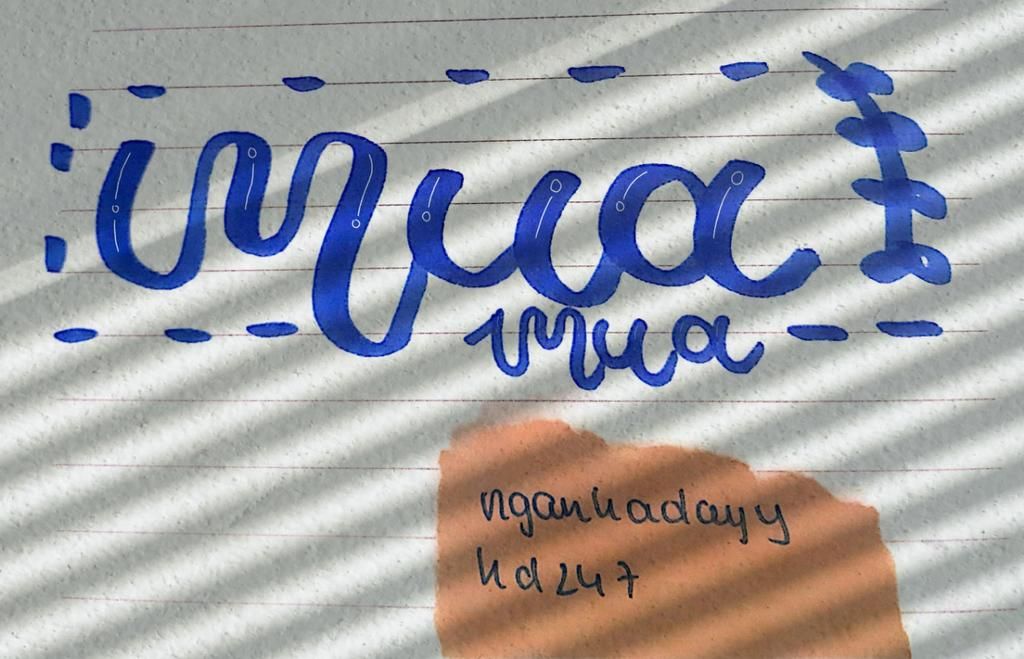 mua
mua
ngankadayy
kd247